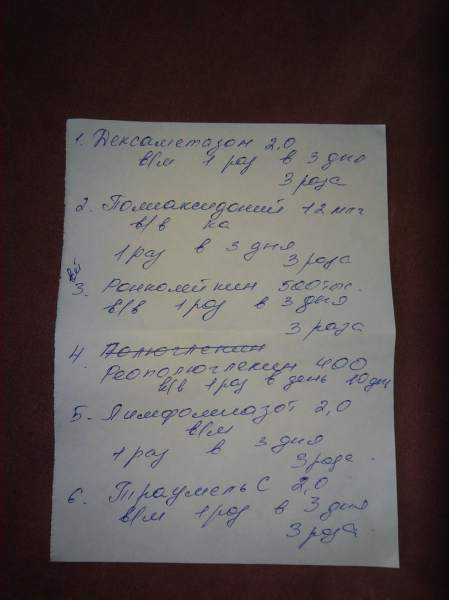 1. Дексаметазон 2,0
в/м 1 раз в 3 дня
3 раза
2. Полиоксидоний 12 мг
в/в на
1 раз в 3 дня
3 раза
3. Ронколейкин 500 тыс.
в/в 1 раз в 3 дня
3 раза
4. Полюглекин
Реополюглекин 400
в/в 1 раз в день 10 дн
5. Лимфомиазот 2,0
в/м
1 раз в 3 дня
3 раза.
6. Траумель С 2,0
в/м 1 раз в 3 дня
3 раза